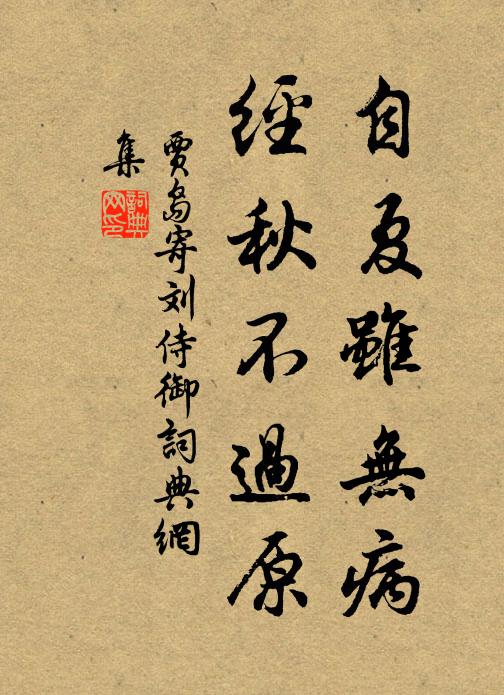 自夏雖無病
經秋不過原
賈島寄刘侍御詞典網
集
詞典
网印